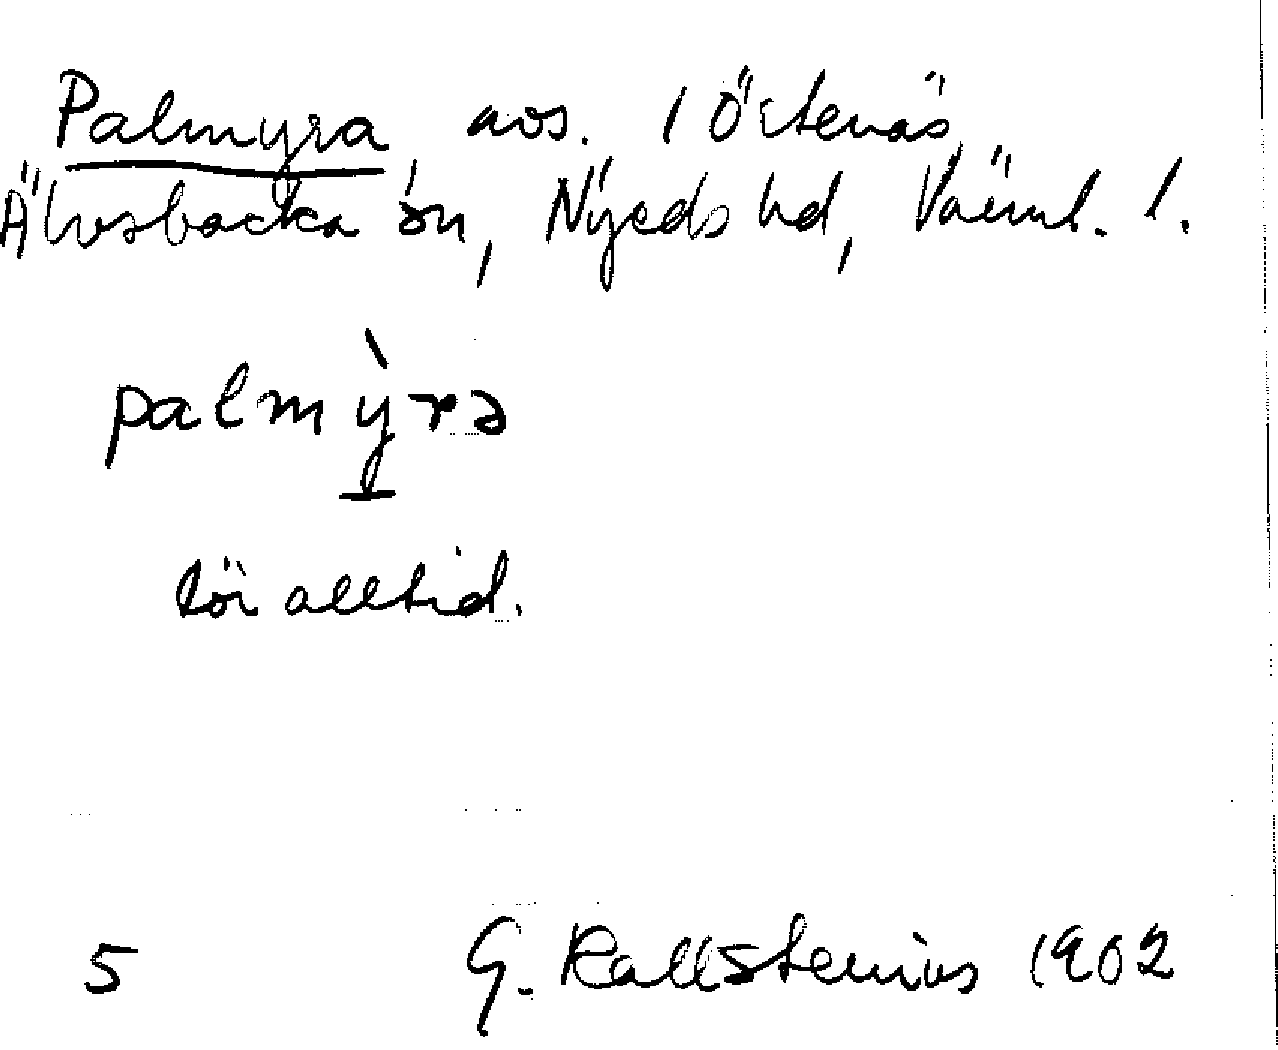 Palmyra avs. 1 Örtenäs,
Älvsbacka sn, Nyeds hd, Värml. l.
palmỳra
för alltid.
5 G. Kallstenius 1902